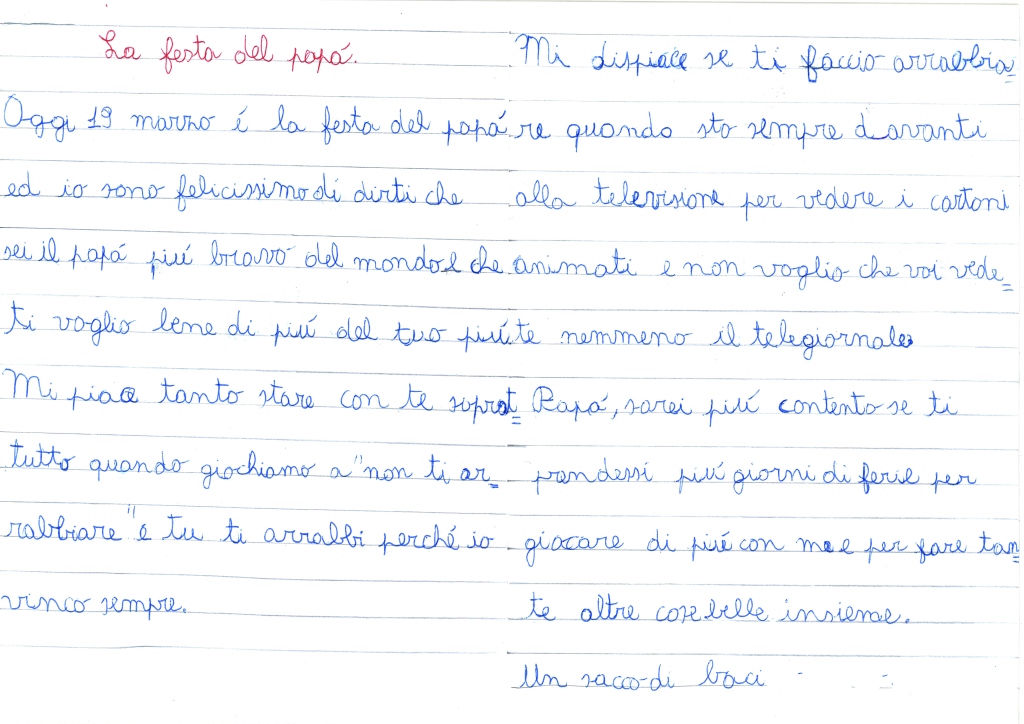 La festa del papá.
Oggi 19 marzo é la festa del papá
ed io sono felicissimo di dirti che
sei il papá piú bravo del mondo e che
ti voglio bene di piú del tuo piú.
Mi piace tanto stare con te soprat=
tutto quando giochiamo a "non ti ar=
rabbiare" e tu ti arrabbi perché io
vinco sempre.
Mi dispiace se ti faccio arrabbia=
re quando sto sempre davanti
alla televisione per vedere i cartoni
animati e non voglio che voi vede=
te nemmeno il telegiornale.
Papá, sarei piú contento se ti
prendessi piú giorni di ferie per
giocare di piú con me e per fare tan=
te altre cose belle insieme.
Un sacco di baci